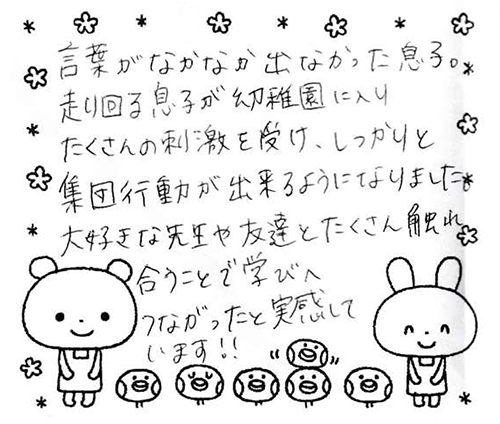 言葉がなかなか出なかった息子。
走り回る息子が幼稚園に入り
たくさんの刺激を受け、しっかりと
集団行動が出来るようになりました。
大好きな先生や友達とたくさん触れ
合うことで学びへ
つながったと実感して
います!!